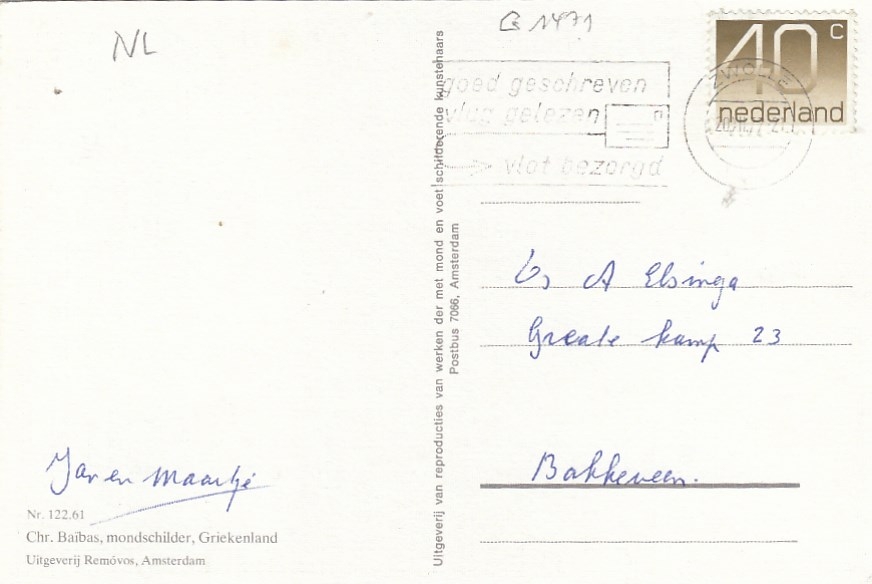 NL
G 1471
40 c
nederland
ZWOLLE
goed geschreven
vlug gelezen
vlot bezorgd
A Elsinga
Greate kamp 23
Bakkeveen.
Jan en Maartje
Nr. 122.61
Chr. Baïbas, mondschilder, Griekenland
Uitgeverij Remóvos, Amsterdam
Uitgeverij van reproducties van werken der met mond en voet schilderende kunstenaars
Postbus 7066, Amsterdam